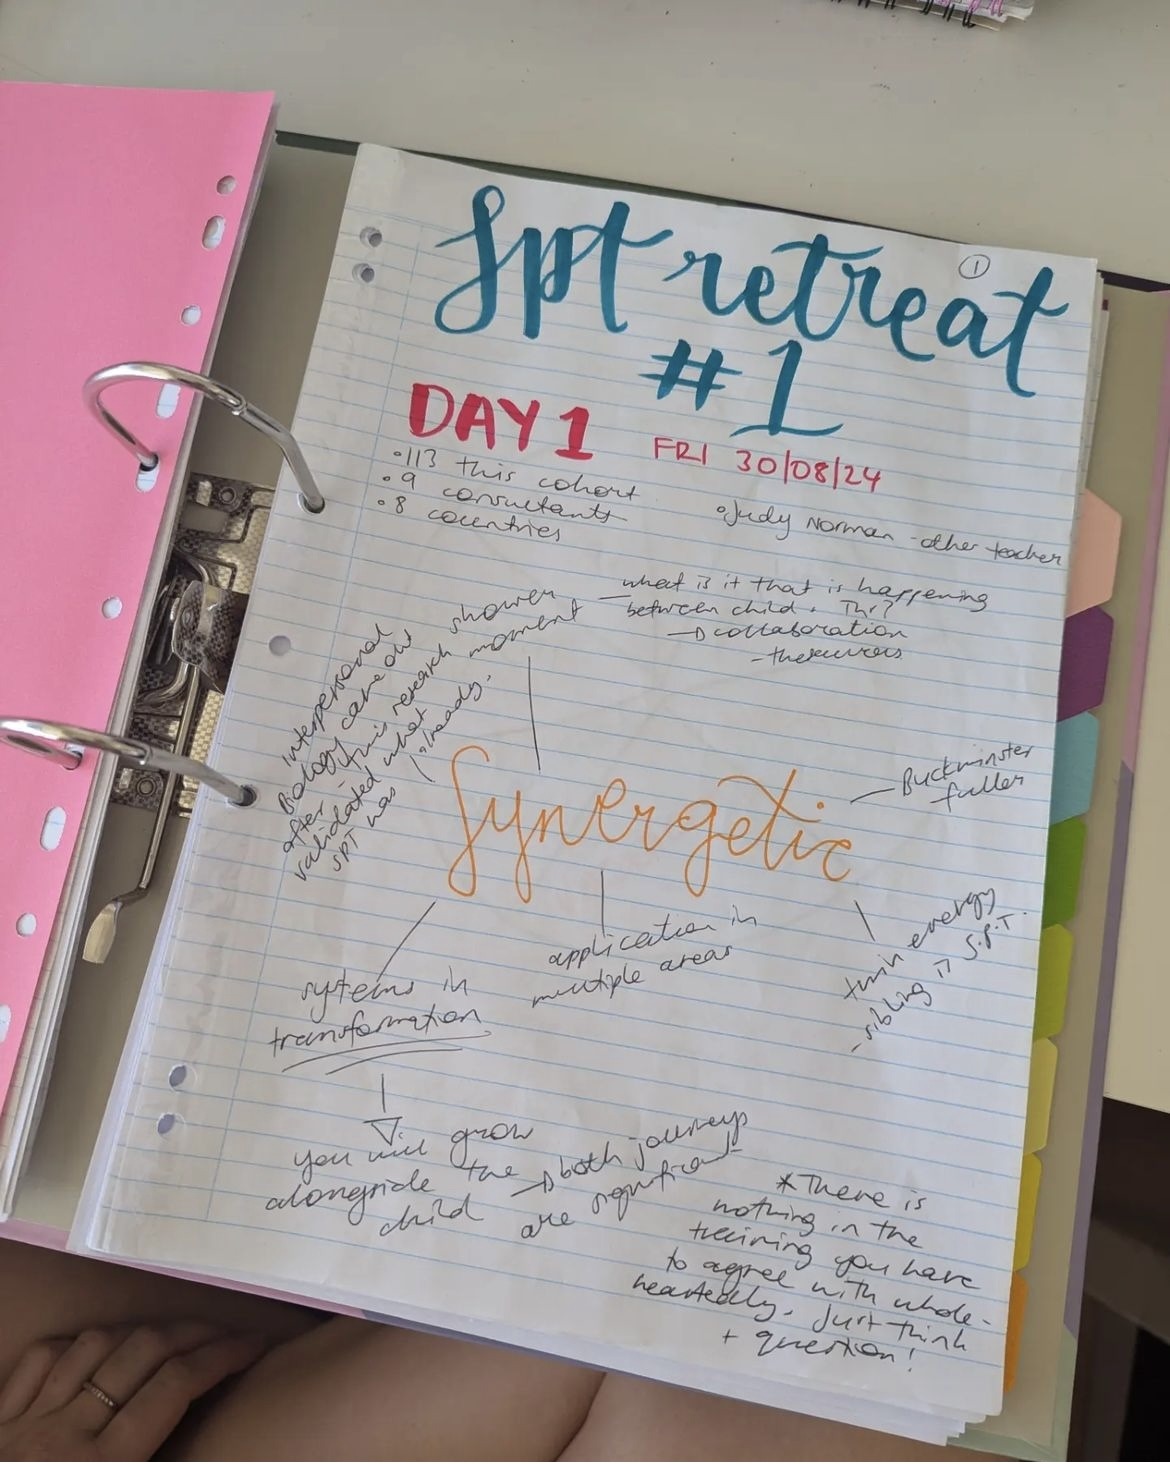 Spt retreat
①
#1
DAY 1
FRI 30/08/24
•113 this cohort
•9 consultants
•8 countries
•Judy Norman - other teacher
shower
moment
- what is it that is happening
between child + Thr?
→ collaboration
- therewas
interpersonal
Biology came out
after - this research
validated what
SPT was already.
Synergetic
- Buckminster
fuller
systems in
transformation
application in
multiple areas
twin energy
- sibling in S.P.T.
you will grow
alongside the
child
→ both journeys
are significant
*There is
nothing in the
training you have
to agree with whole-
heartedly. Just think
+ question!